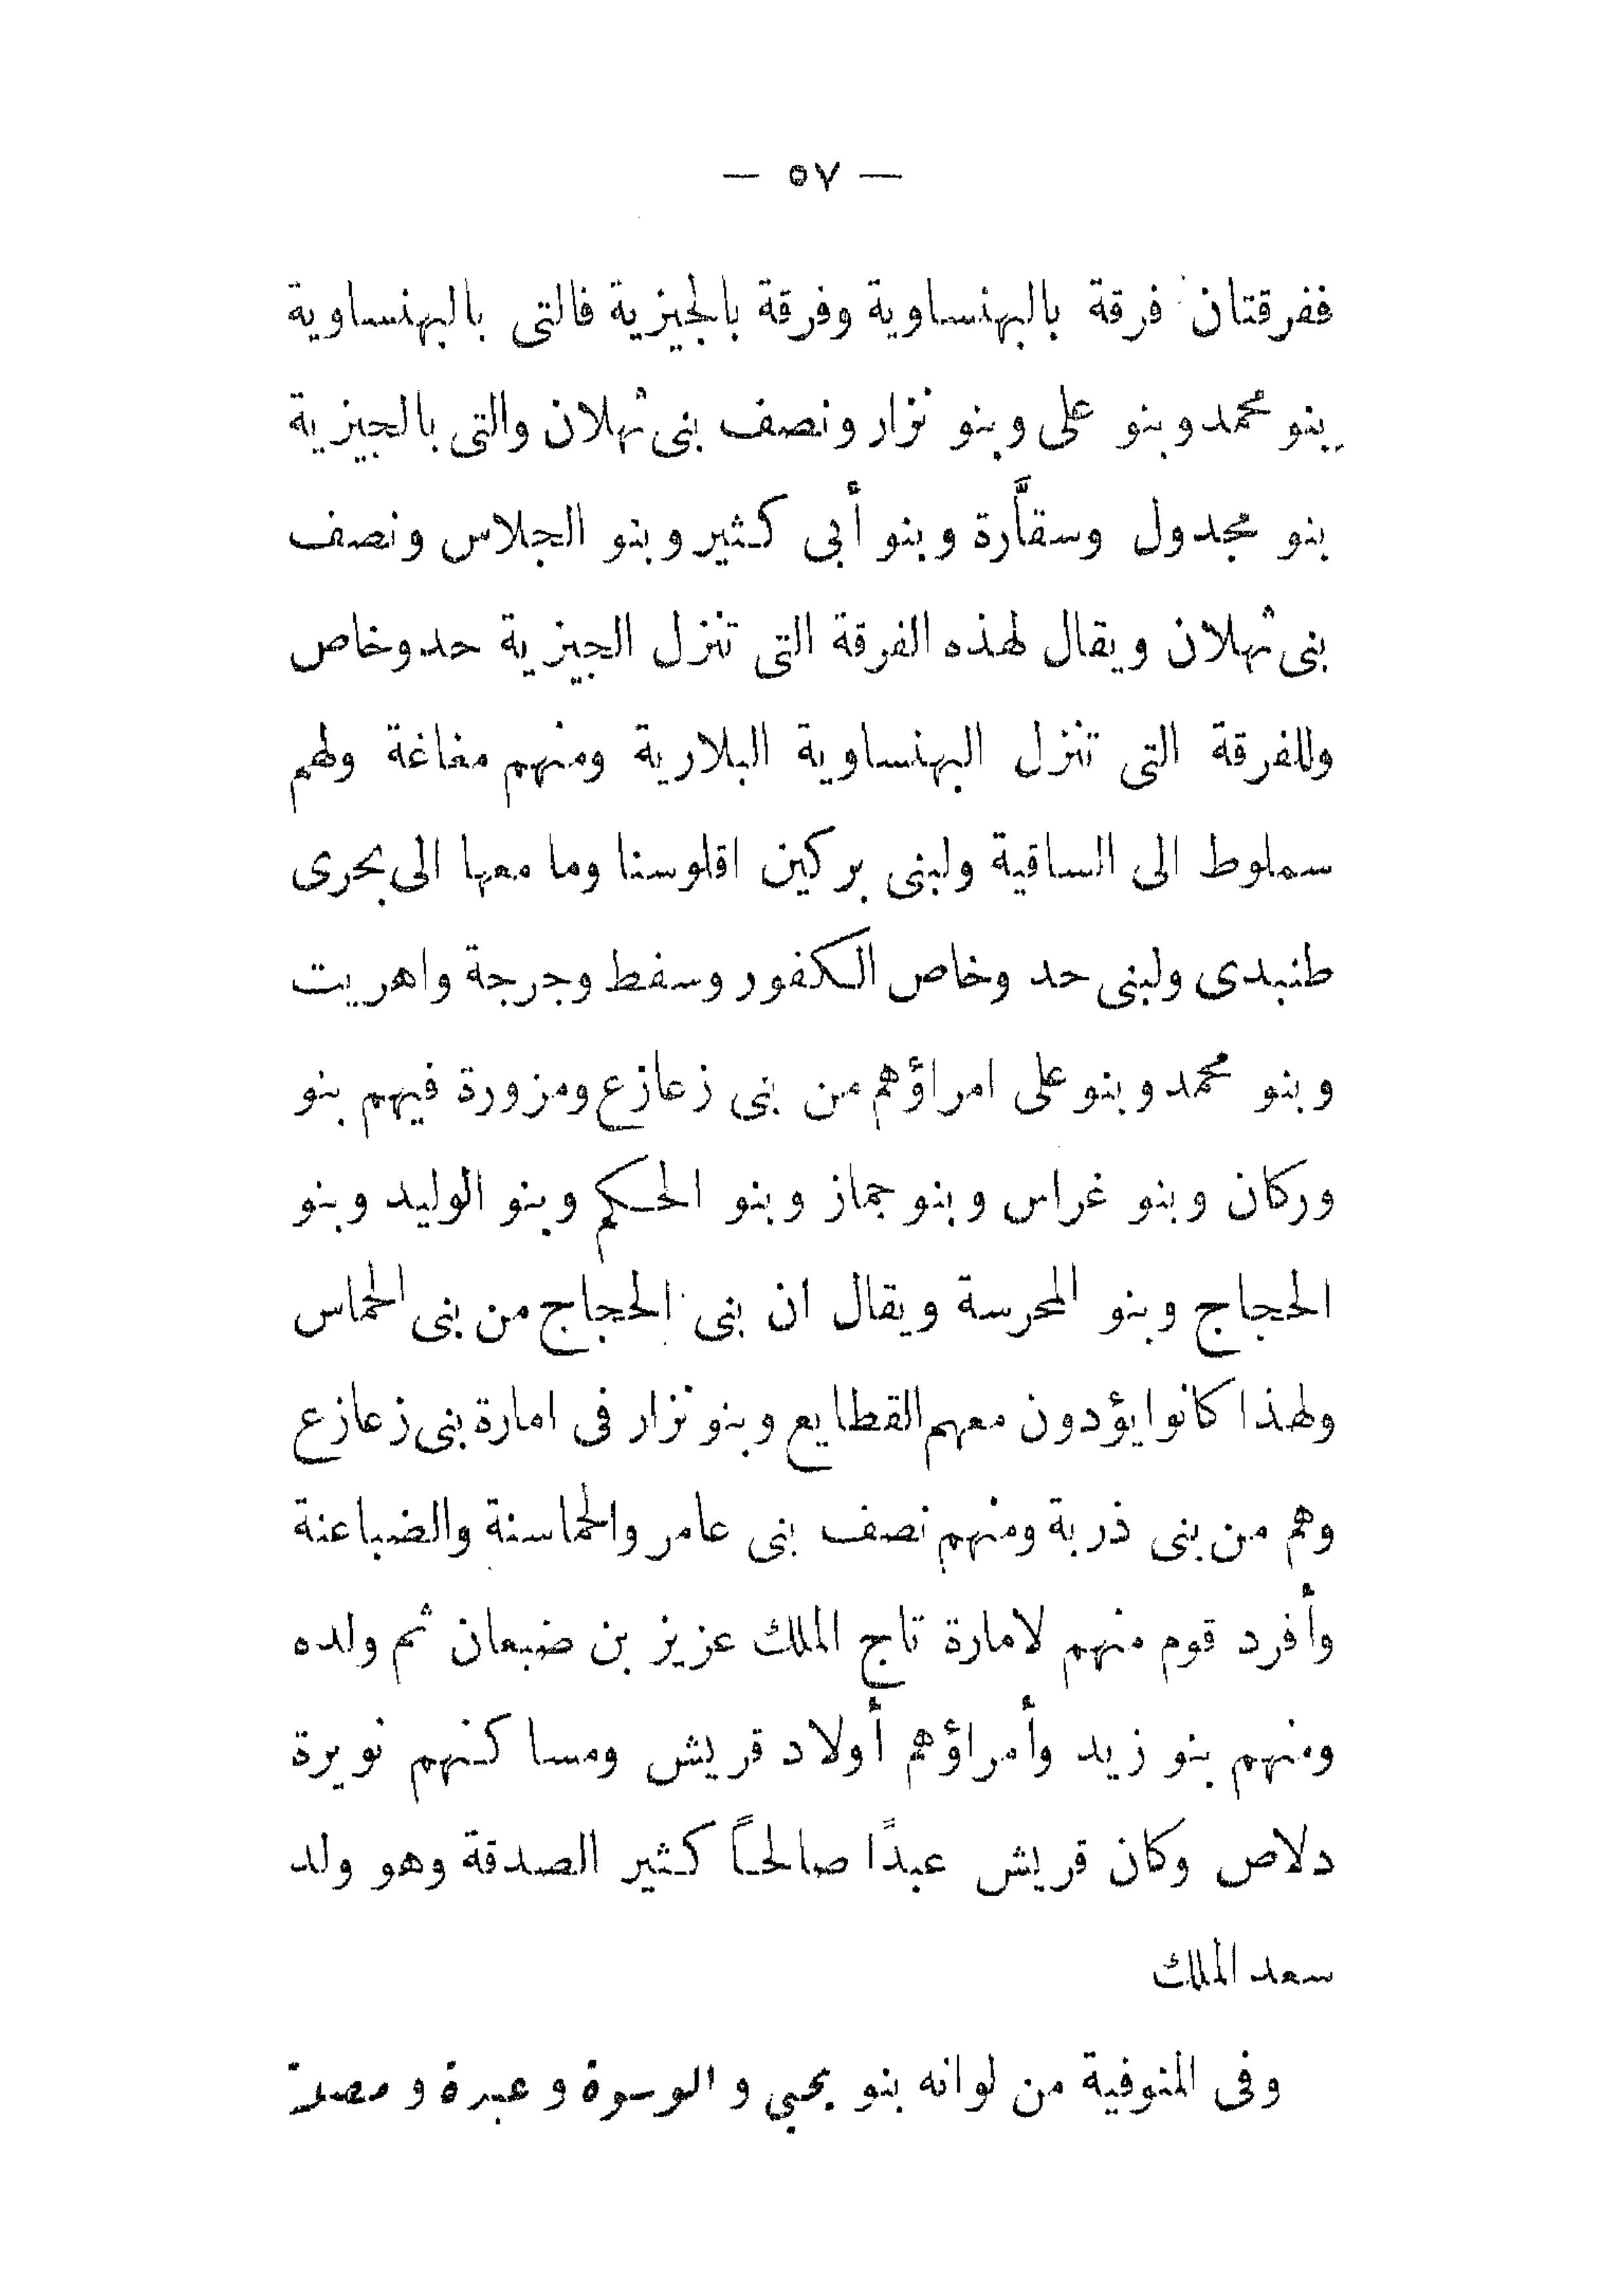 — ٥٧ —
ففرقتان فرقة بالبهنساوية وفرقة بالجيزية فالتى بالبهنساوية
بنو محمد وبنو على وبنو نزار ونصف بنى ثهلان والتى بالجيزية
بنو مجدول وسقاَّرة وبنو أبى كثير وبنو الجلاس ونصف
بنى ثهلان ويقال لهذه الفرقة التى تنزل الجيزية حد وخاص
وللفرقة التى تنزل البهنساوية البلارية ومنهم مغاغة ولهم
سملوط الى الساقية ولبنى بركين اقلوسنا وما معها الى بحرى
طنبدى ولبنى حد وخاص الكفور وسفط وجرجة واهريت
وبنو محمد وبنو على امراؤهم من بنى زعازع ومزورة فيهم بنو
وركان وبنو غراس وبنو جماز وبنو الحكم وبنو الوليد وبنو
الحجاج وبنو المحرسة ويقال ان بنى الحجاج من بنى الحماس
ولهذا كانوا يؤدون معهم القطايع وبنو نزار فى امارة بنى زعازع
وهم من بنى ذربة ومنهم نصف بنى عامر والحماسنة والضباعنة
وأفرد قوم منهم لامارة تاج الملك عزيز بن ضبعان ثم ولده
ومنهم بنو زيد وأمراؤهم أولاد قريش ومساكنهم نويرة
دلاص وكان قريش عبدًا صالحًا كثير الصدقة وهو ولد
سعد الملك
وفى المنوفية من لوانه بنو يحيي و الوسوة و عبرة و